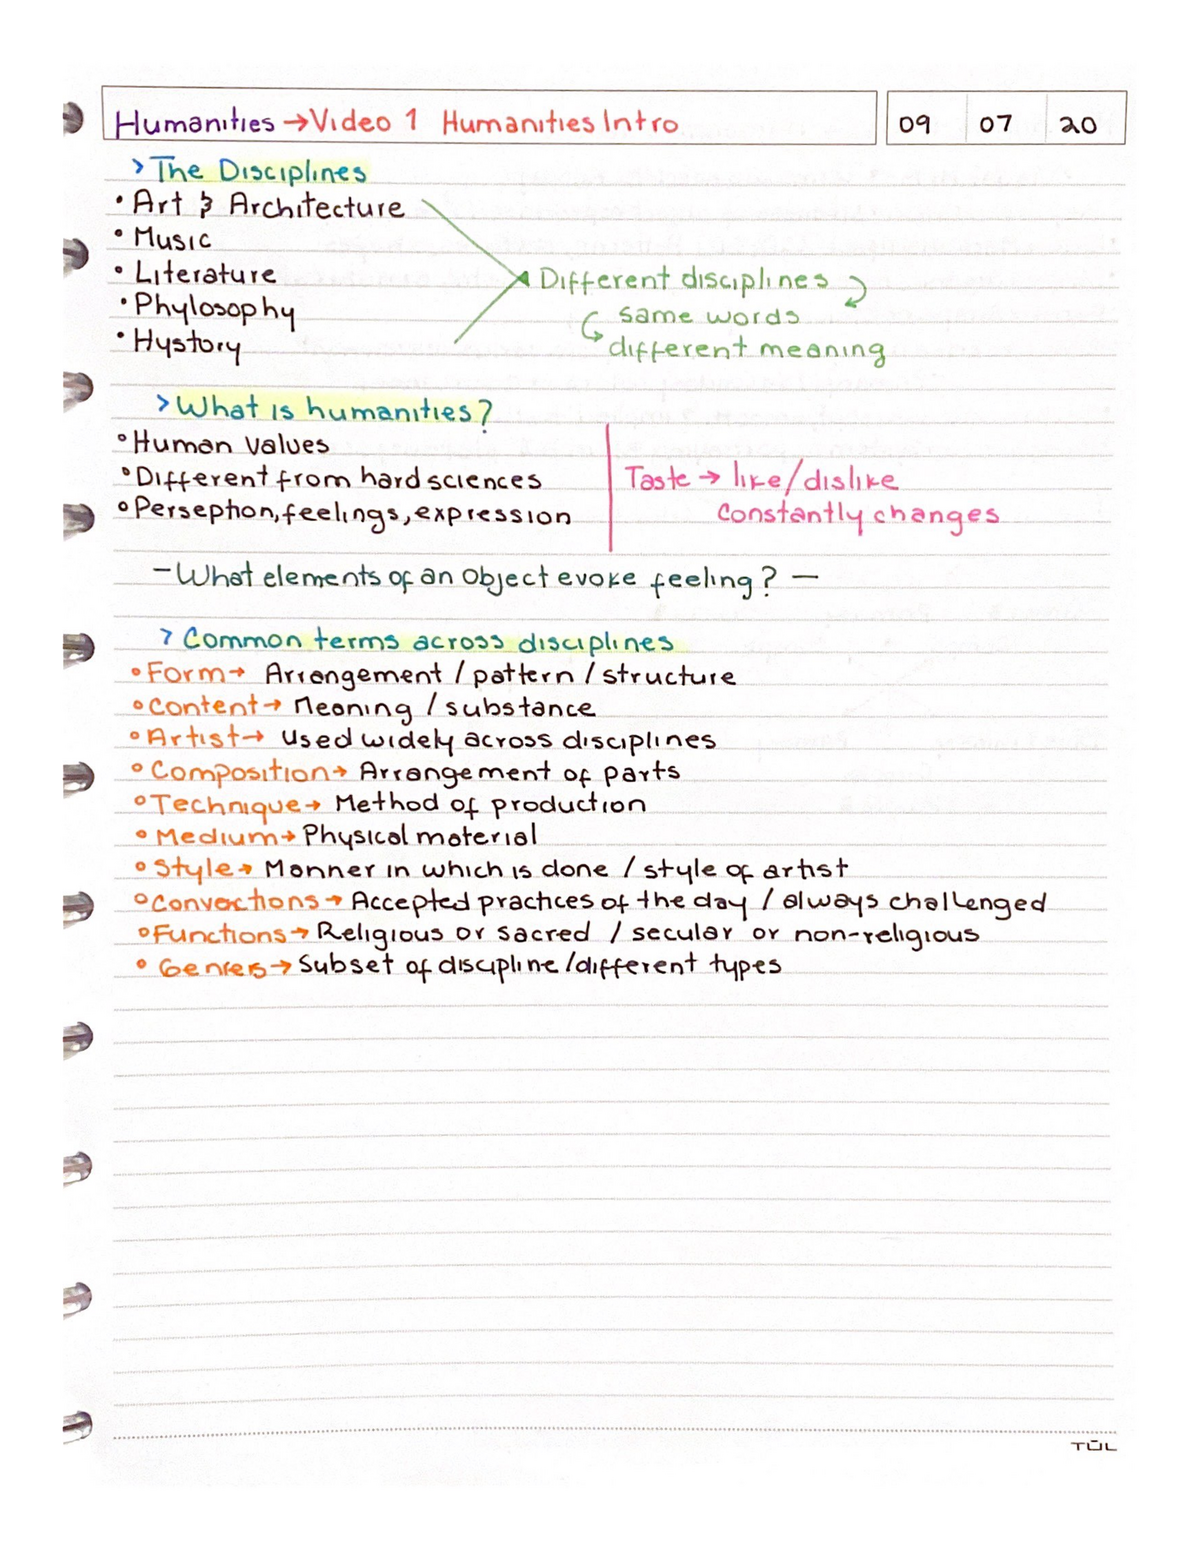 Humanities →Video 1 Humanities Intro 09 07 20
> The Disciplines
• Art & Architecture
• Music
• Literature
Different disciplines
• Phylosophy
same words
• Hystory
different meaning
> What is humanities?
• Human Values
• Different from hard sciences
Taste → like/dislike
• Perseption, feelings, expression
Constantly changes
— What elements of an Object evoke feeling? —
> Common terms across disciplines
• Form→ Arrangement / pattern / structure
• Content→ Meaning / substance
• Artist→ Used widely across disciplines
• Composition→ Arrangement of parts
• Technique→ Method of production
• Medium→ Physical material
• Style→ Manner in which is done / style of artist
• Conventions→ Accepted practices of the day / always challenged
• Functions→ Religious or sacred / secular or non-religious
• Genres→ Subset of discipline /different types
TŪL